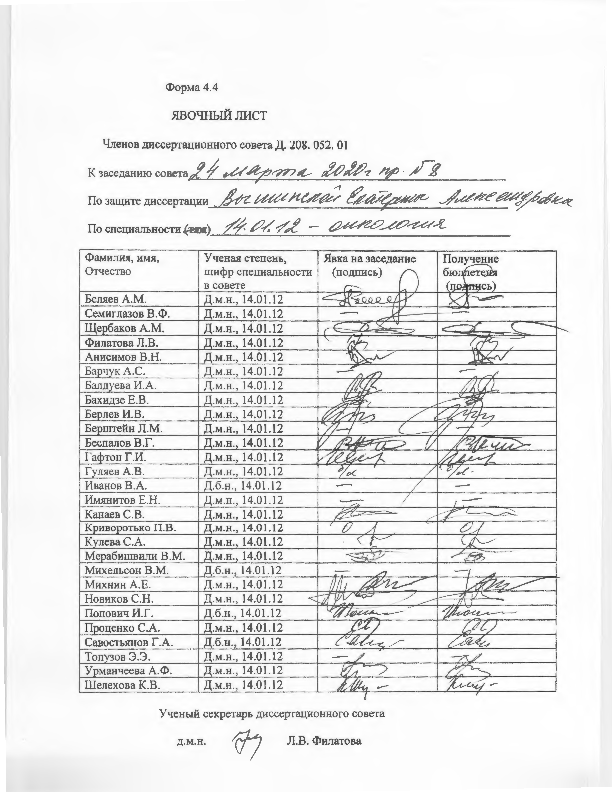 Форма 4.4
ЯВОЧНЫЙ ЛИСТ
Членов диссертационного совета Д. 208. 052. 01
К заседанию совета 24 марта 2020г пр. №8
По защите диссертации Екатерины Александровна
По специальности 14.01.12 – онкология
Фамилия, имя, Отчество Ученая степень, шифр специальности в совете Явка на заседание (подпись) Получение бюллетеня (подпись)
Беляев А.М. Д.м.н., 14.01.12
Семиглазов В.Ф. Д.м.н., 14.01.12 — —
Щербаков А.М. Д.м.н., 14.01.12
Филатова Л.В. Д.м.н., 14.01.12
Анисимов В.Н. Д.м.н., 14.01.12
Барчук А.С. Д.м.н., 14.01.12 — —
Балдуева И.А. Д.м.н., 14.01.12
Бахидзе Е.В. Д.м.н., 14.01.12
Берлев И.В. Д.м.н., 14.01.12
Берштейн Л.М. Д.м.н., 14.01.12 — —
Беспалов В.Г. Д.м.н., 14.01.12
Гафтон Г.И. Д.м.н., 14.01.12
Гуляев А.В. Д.м.н., 14.01.12
Иванов В.А. Д.б.н., 14.01.12 — —
Имянитов Е.Н. Д.м.н., 14.01.12 — —
Канаев С.В. Д.м.н., 14.01.12
Криворотько П.В. Д.м.н., 14.01.12
Кулева С.А. Д.м.н., 14.01.12
Мерабишвили В.М. Д.м.н., 14.01.12
Михельсон В.М. Д.б.н., 14.01.12 — —
Михнин А.Е. Д.м.н., 14.01.12
Новиков С.Н. Д.м.н., 14.01.12
Попович И.Г. Д.б.н., 14.01.12
Проценко С.А. Д.м.н., 14.01.12
Савостьянов Г.А. Д.б.н., 14.01.12
Топузов Э.Э. Д.м.н., 14.01.12 — —
Урманчеева А.Ф. Д.м.н., 14.01.12
Шелехова К.В. Д.м.н., 14.01.12
Ученый секретарь диссертационного совета
д.м.н. Л.В. Филатова